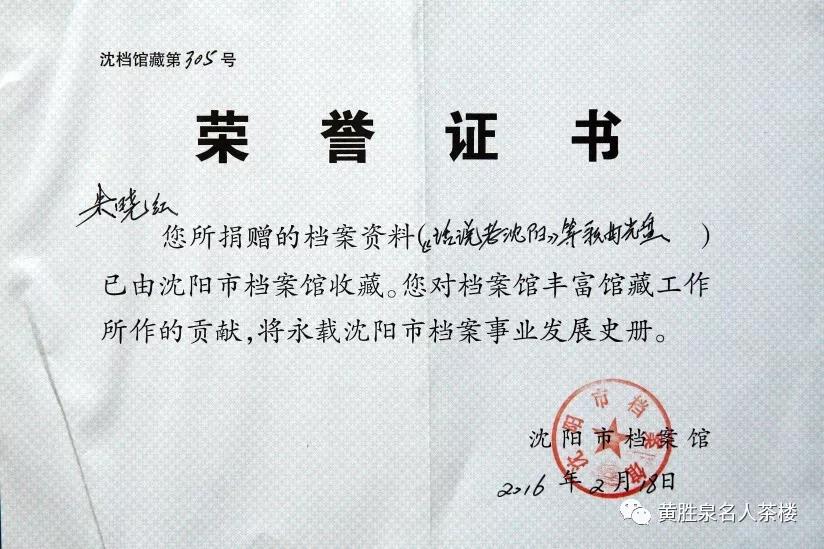 沈档馆藏第305号
荣誉证书
朱晓红
您所捐赠的档案资料(《话说老沈阳》等歌曲光盘)
已由沈阳市档案馆收藏。您对档案馆丰富馆藏工作
所作的贡献,将永载沈阳市档案事业发展史册。
沈阳市档案馆
沈阳市档案馆
2016年2月18日
黄胜泉名人茶楼